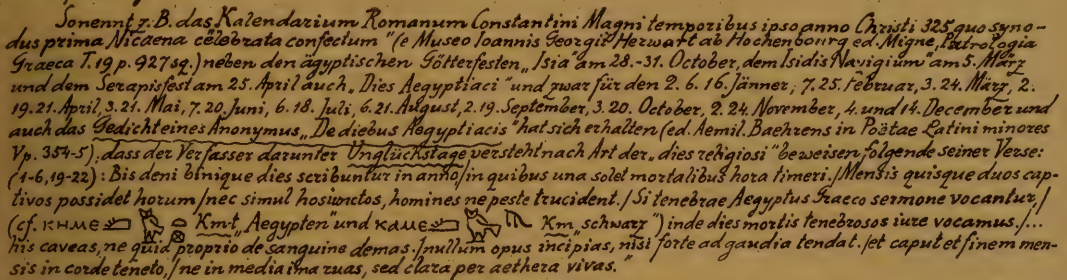 So nennt z. B. das „Kalendarium Romanum Constantini Magni temporibus ipso anno Christi 325 quo syno-
dus prima Nicaena celebrata confectum" (e Museo Ioannis Georgii Herwart ab Hochenbourg ed. Migne, Patrologia
Graeca T. 19 p. 927 sq.) neben den ägyptischen Götterfesten „Isia" am 28.-31. October, dem „Isidis Navigium" am 5. März
und dem Serapisfest am 25. April auch „Dies Aegyptiaci" und zwar für den 2. 6. 16. Jänner, 7. 25. Februar, 3. 24. März, 2.
19. 21. April, 3. 21. Mai, 7. 20. Juni, 6. 18. Juli, 6. 21. August, 2. 19. September, 3. 20. October, 2. 24. November, 4. und 14. December und
auch das Gedicht eines Anonymus „De diebus Aegyptiacis" hat sich erhalten (ed. Aemil. Baehrens in Poëtae Latini minores
V p. 354-5); dass der Verfasser darunter Unglückstage versteht nach Art der „dies religiosi" beweisen folgende seiner Verse:
(1-6, 19-22): Bis deni binique dies scribuntur in anno,/in quibus una solet mortalibus hora timeri./Mensis quisque duos cap-
tivos possidet horum,/nec simul hos iunctos, homines ne peste trucident./Si tenebrae Aegyptus Graeco sermone vocantur,/
(cf. ⲕⲏⲙⲉ Km·t „Aegypten" und ⲕⲁⲙⲉ Km „schwarz") inde dies mortis tenebrosos iure vocamus./...
his caveas, ne quid proprio de sanguine demas./nullum opus incipias, nisi forte ad gaudia tendat./et caput et finem men-
sis in corde teneto,/ne in media ima ruas, sed clara per aethera vivas."